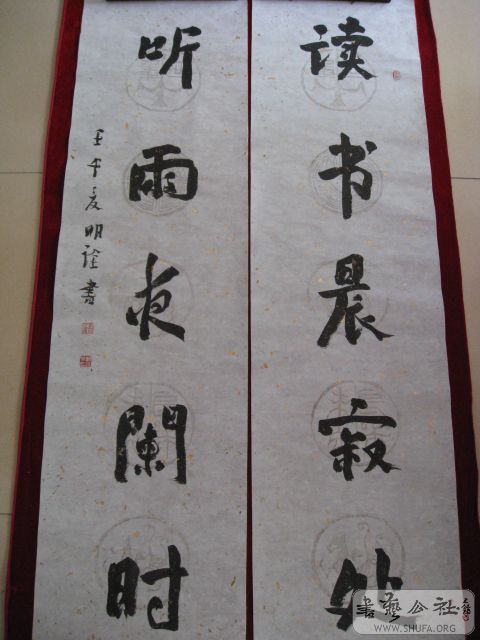 读书晨寂处
听雨夜闌时
壬午夏明詮書
書藝公社
WWW.SHUFA.ORG